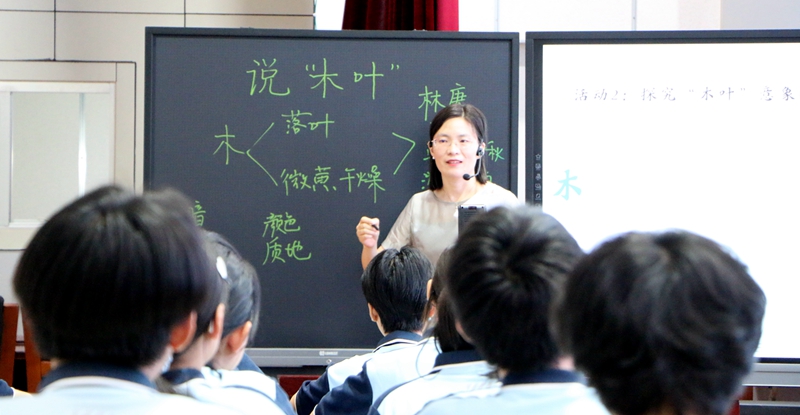 说“木叶”
林庚
落叶
木
秋
微黄、干燥
音
颜色
质地
活动2：探究“木叶”意象
木